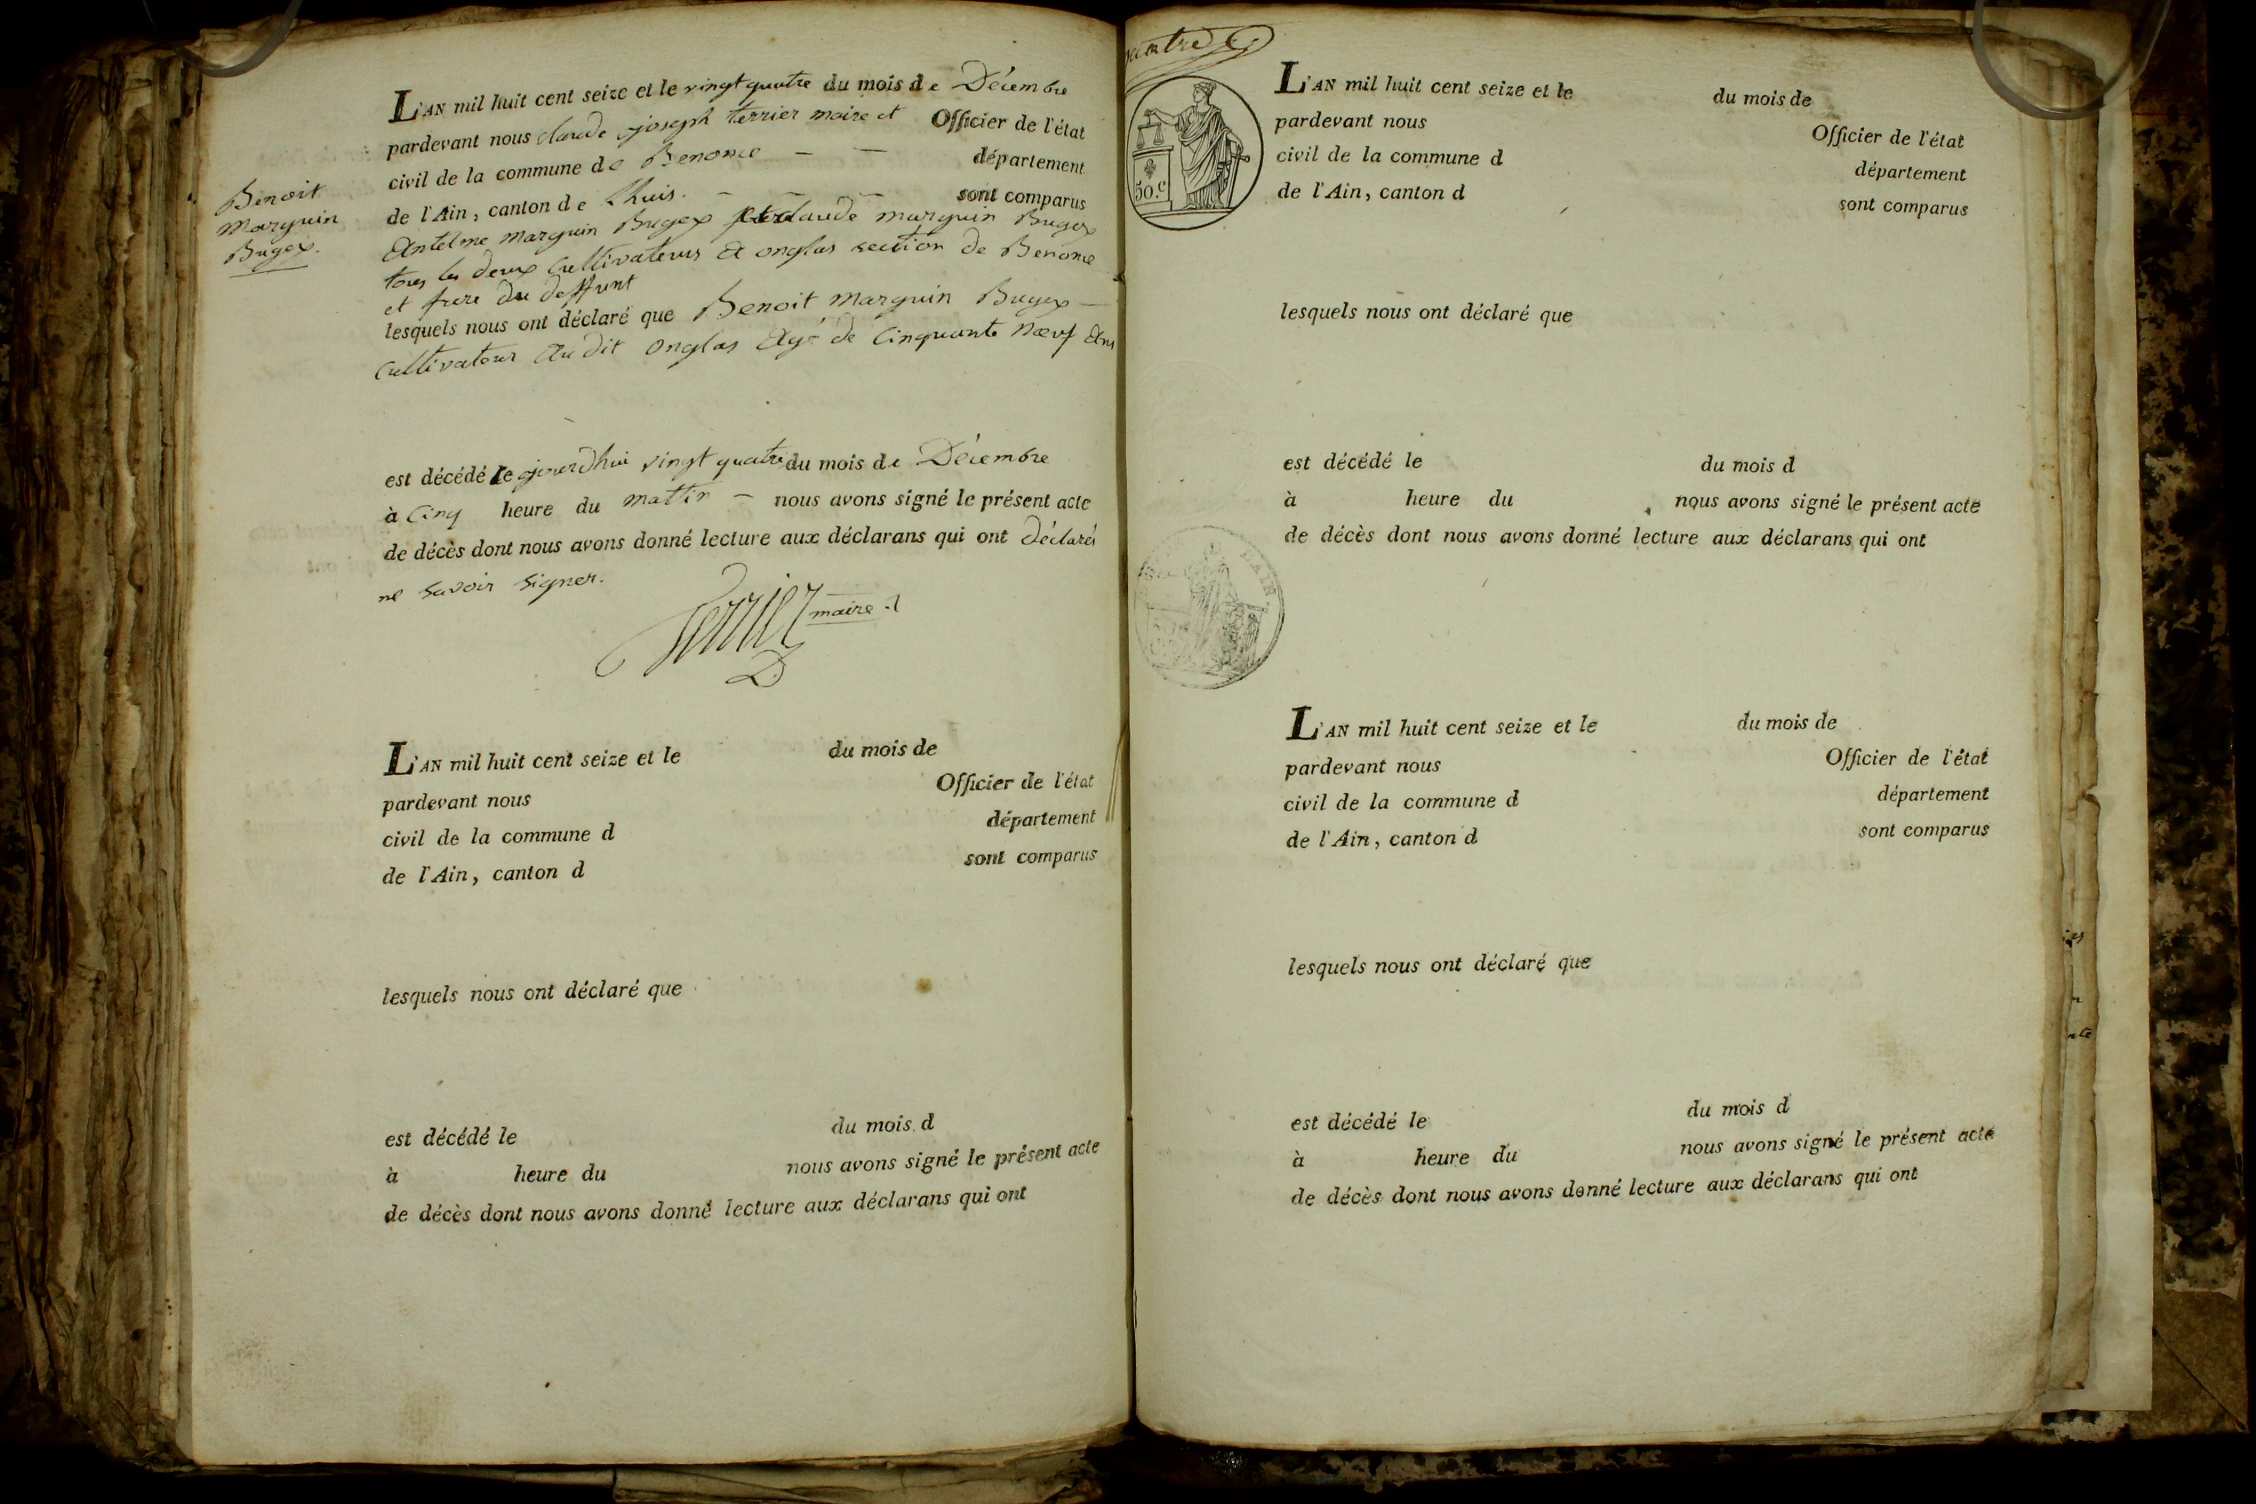 Benoit
Marguin
Bugex.
L'AN mil huit cent seize et le vingt quatre du mois de Décembre
pardevant nous claude joseph terrier maire et Officier de l'état
civil de la commune de Benonce — — département
de l'Ain, canton de Lhuis. — — — sont comparus
Antelme marguin Bugex et claude marguin Bugex
tous les deux Cultivateurs A onglas section de Benonce
et frere du deffunt
lesquels nous ont déclaré que Benoit marguin Bugex —
Cultivateur Au dit Onglas Agé de Cinquante Nœuf Ans
est décédé le ajourdhui vingt quatre du mois de Décembre
à Cinq heure du mattin — nous avons signé le présent acte
de décès dont nous avons donné lecture aux déclarans qui ont déclarés
ne savoir signer.
Terrier maire
L'AN mil huit cent seize et le du mois de
pardevant nous Officier de l'état
civil de la commune d département
de l'Ain, canton d sont comparus
lesquels nous ont déclaré que
est décédé le du mois d
à heure du nous avons signé le présent acte
de décès dont nous avons donné lecture aux déclarans qui ont
50.C
L'AN mil huit cent seize et le du mois de
pardevant nous Officier de l'état
civil de la commune d département
de l'Ain, canton d sont comparus
lesquels nous ont déclaré que
est décédé le du mois d
à heure du nous avons signé le présent acte
de décès dont nous avons donné lecture aux déclarans qui ont
L'AIN
L'AN mil huit cent seize et le du mois de
pardevant nous Officier de l'état
civil de la commune d département
de l'Ain, canton d sont comparus
lesquels nous ont déclaré que
est décédé le du mois d
à heure du nous avons signé le présent acte
de décès dont nous avons donné lecture aux déclarans qui ont